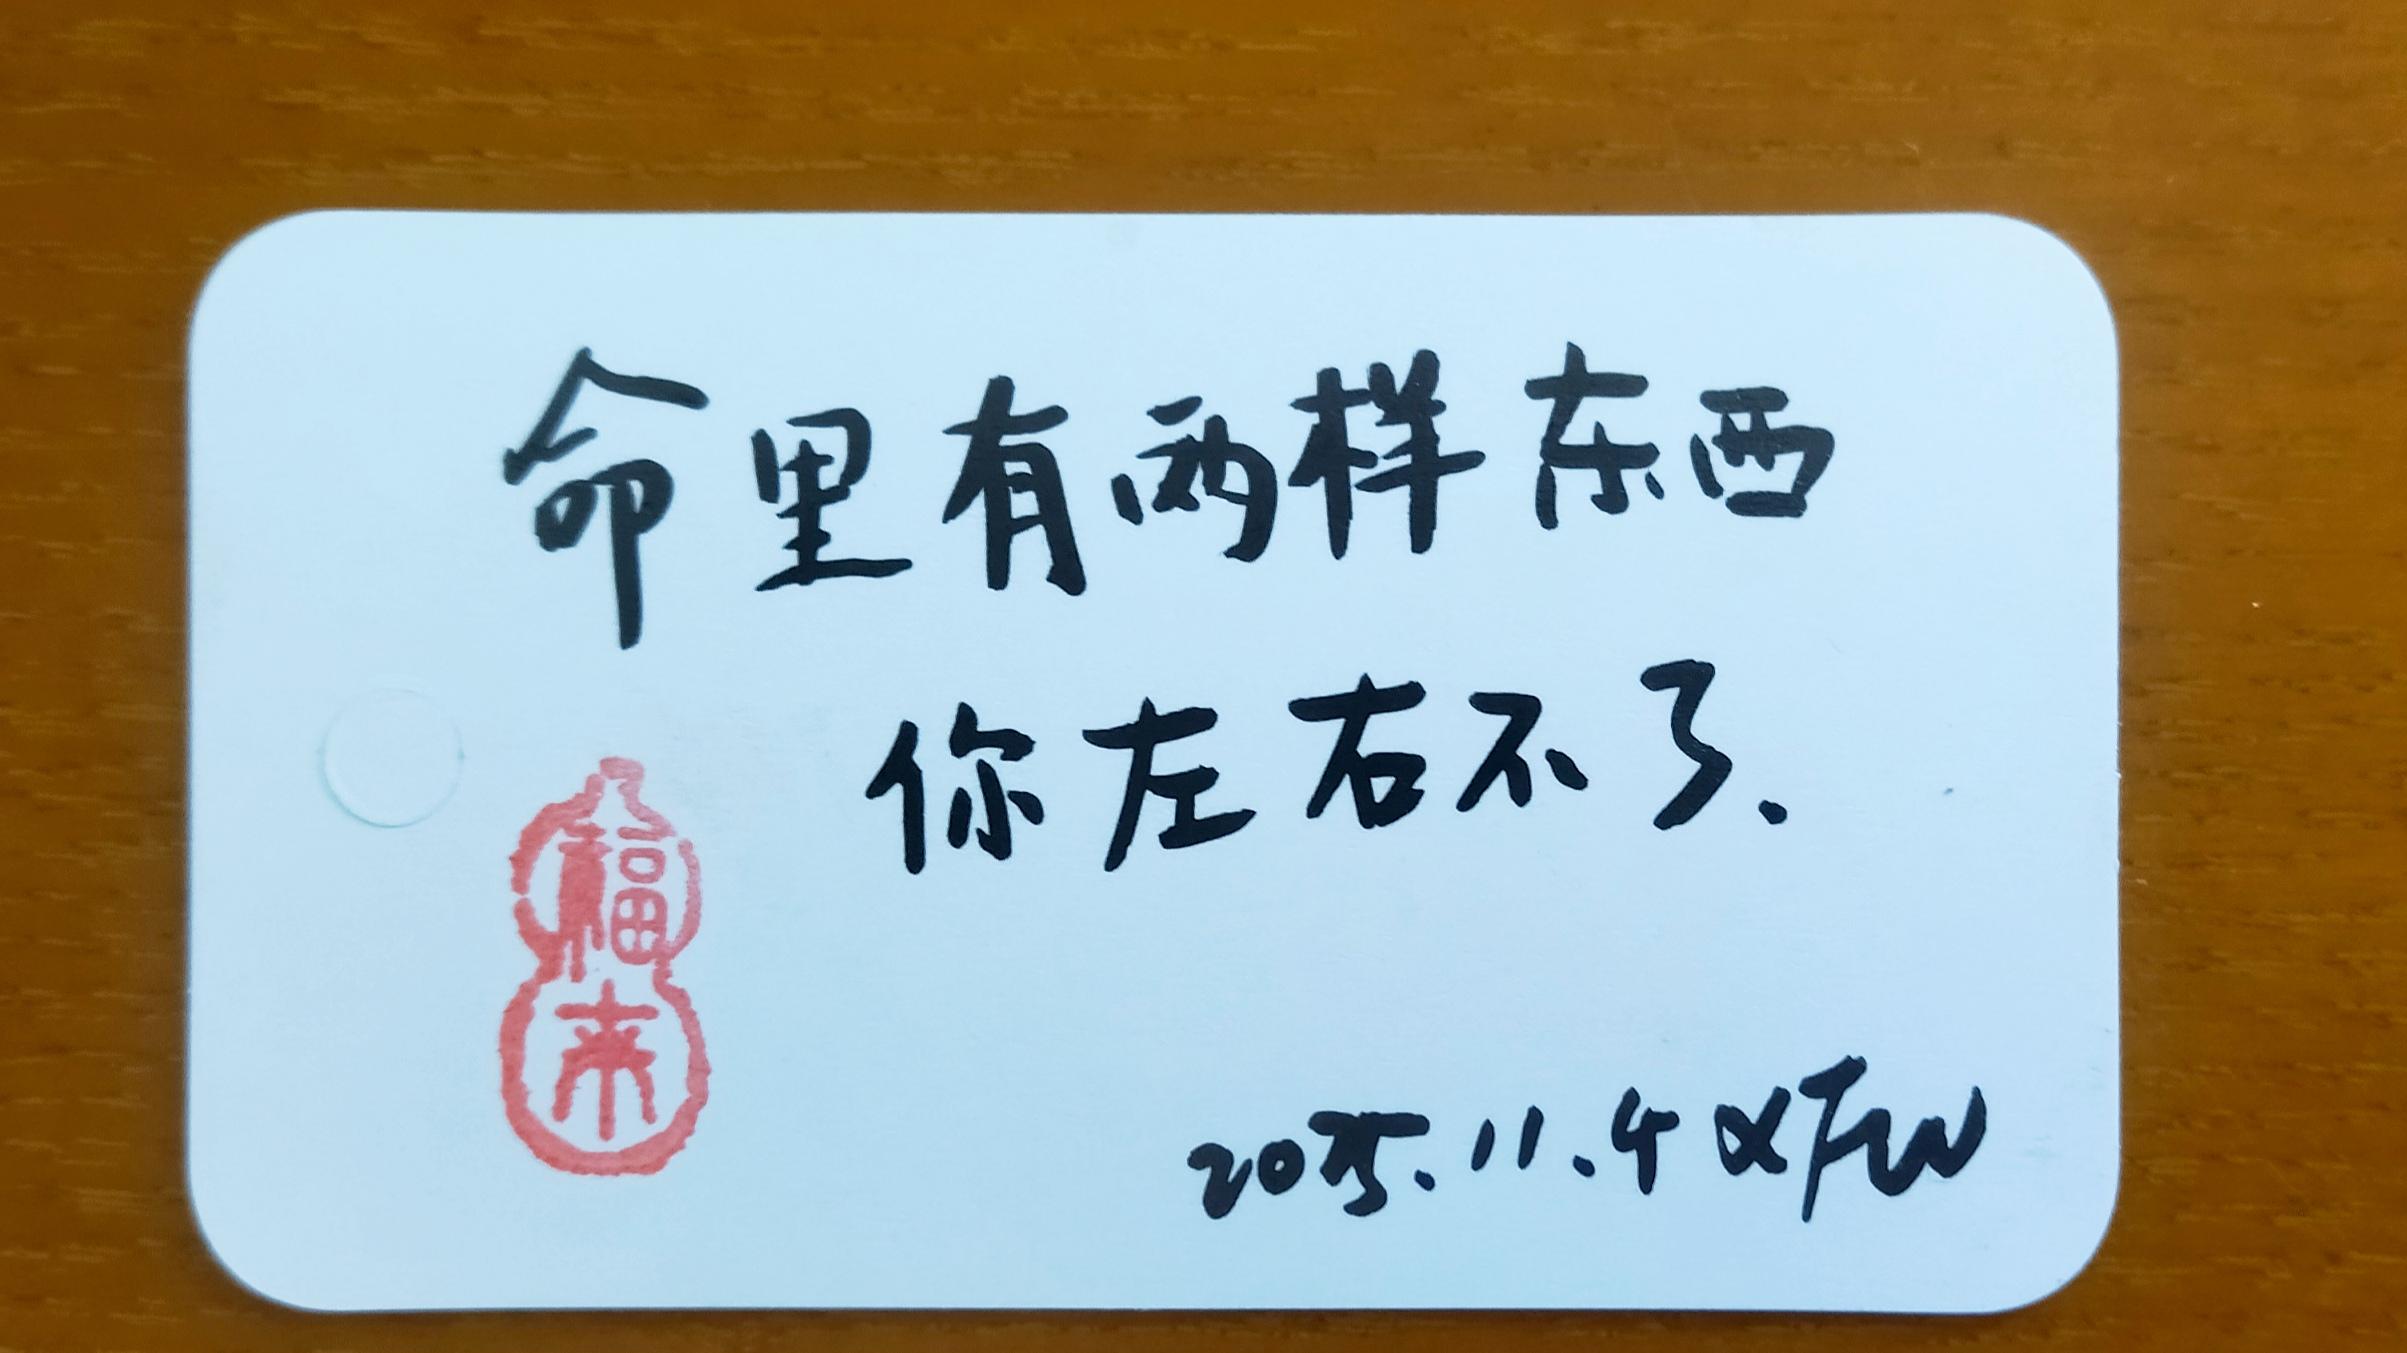 命里有两样东西
你左右不了.
福来
2025.11.4